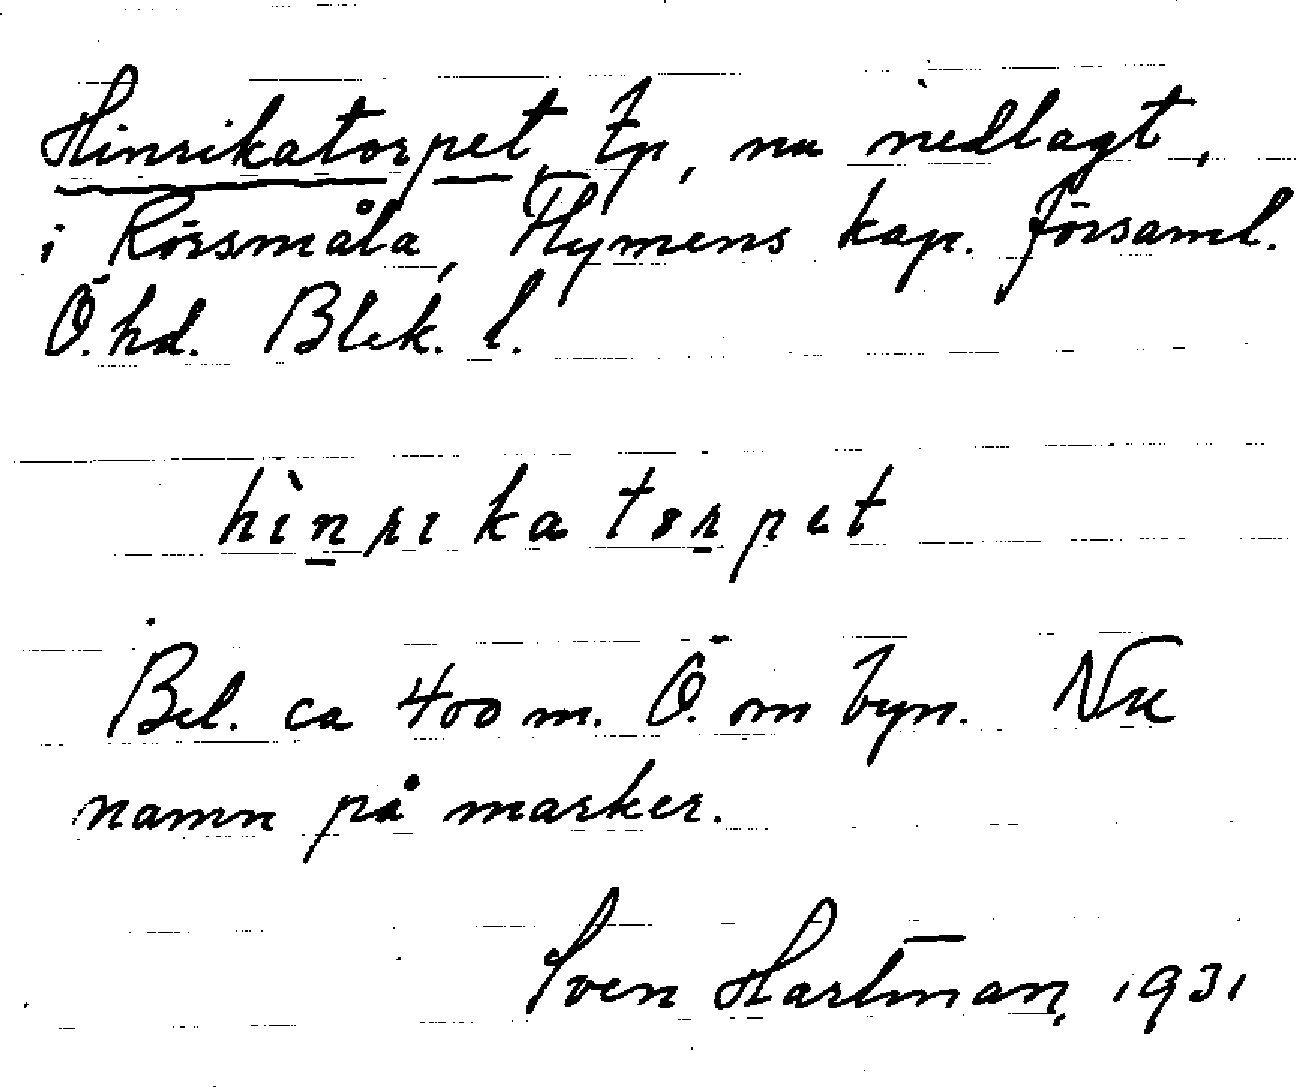 Hinrikatorpet, tp, nu nedlagt,
i Rörsmåla, Flymens kap. församl.
Ö. hd. Blek. l.
hìnrikatorpet
Bel. ca 400 m. Ö. om byn. Nu
namn på marker.
Sven Hartman, 1931